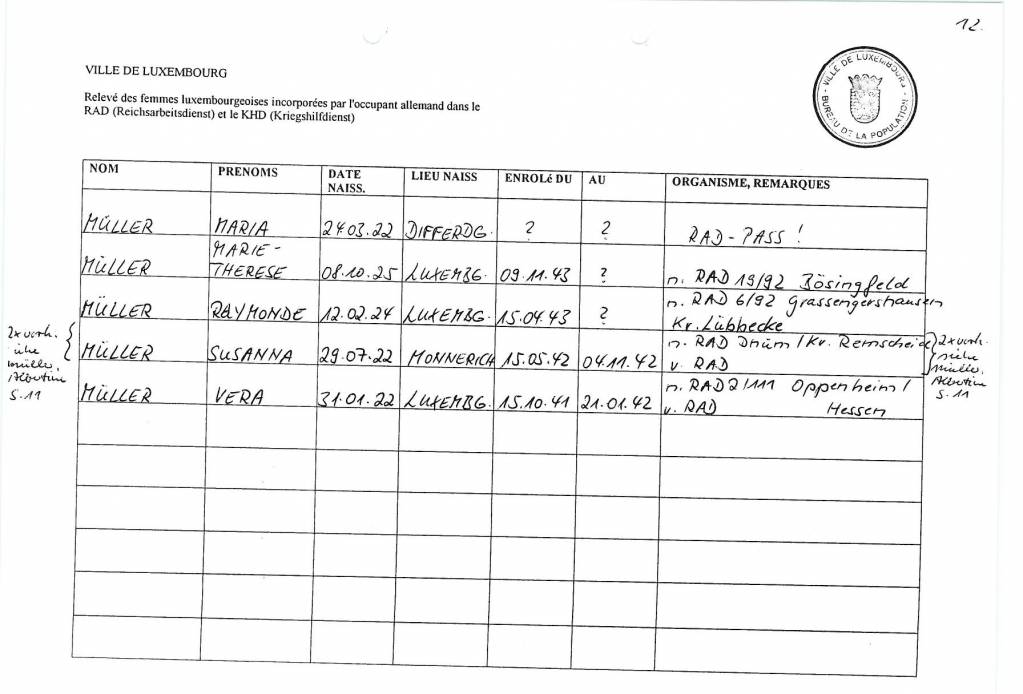 12.
VILLE DE LUXEMBOURG
Relevé des femmes luxembourgeoises incorporées par l'occupant allemand dans le
RAD (Reichsarbeitsdienst) et le KHD (Kriegshilfdienst)
VILLE DE LUXEMBOURG
BUREAU DE LA POPULATION
NOM PRENOMS DATE NAISS. LIEU NAISS ENROLé DU AU ORGANISME, REMARQUES
MÜLLER MARIA 24.03.22 DIFFERDG. ? ? RAD-PASS!
MÜLLER MARIE-THERESE 08.10.25 LUXEMBG. 09.11.43 ? n. RAD 19/92 Bösingfeld
MÜLLER RAYMONDE 12.02.24 LUXEMBG. 15.04.43 ? n. RAD 6/92 Grassengershausen
Kr. Lübbecke
MÜLLER SUSANNA 29.07.22 MONNERICH 15.05.42 04.11.42 n. RAD /Kr. Remscheid
v. RAD
MÜLLER VERA 31.01.22 LUXEMBG. 15.10.41 21.01.42 n. RAD 2/111 Oppenheim/
v. RAD Hessen
2x vorh.
siehe
Müller,
Albertine
S.11
2x vorh.
siehe
Müller,
Albertine
S.11